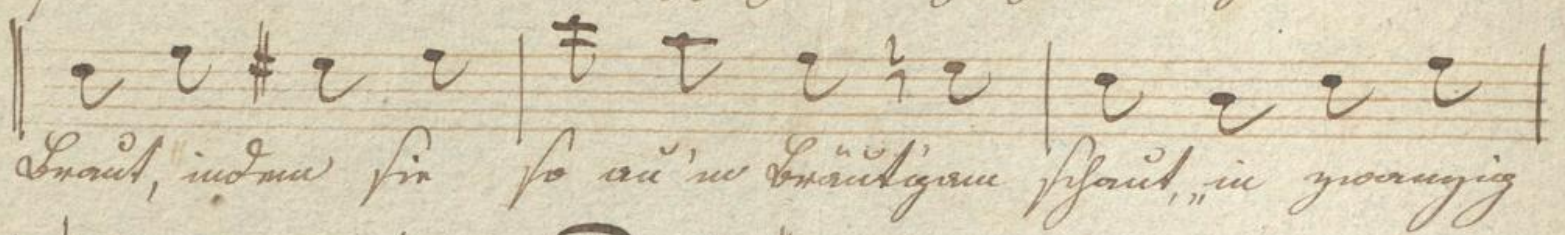 Braut, indem sie so au'm Bräutigam schaut, „in zwanzig